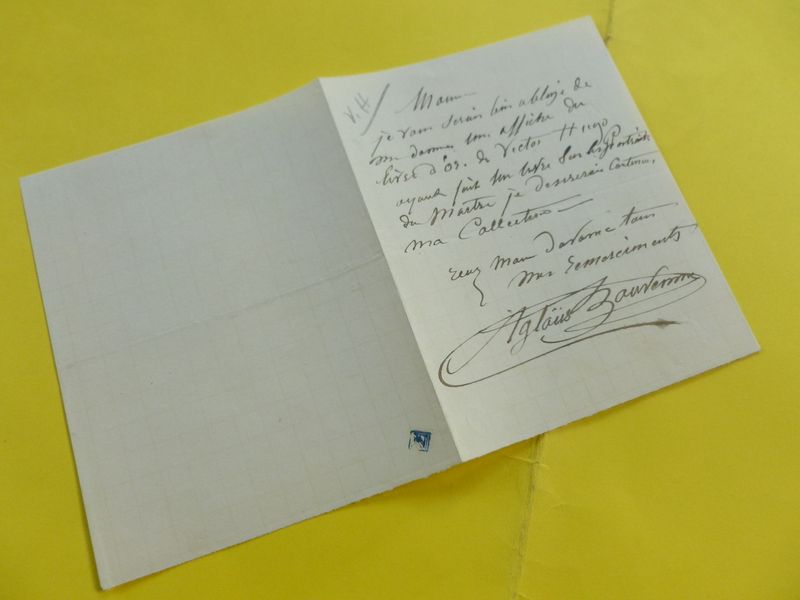 V. H
je vous serais bien obligé de
me donner une affiche du
livre d'or. de Victor Hugo
ayant fait un livre Sur les portraits
du Maitre je desirerais Continuer
ma Collection
d'avance tous
mes remerciments
Aglaüs Bouvenne